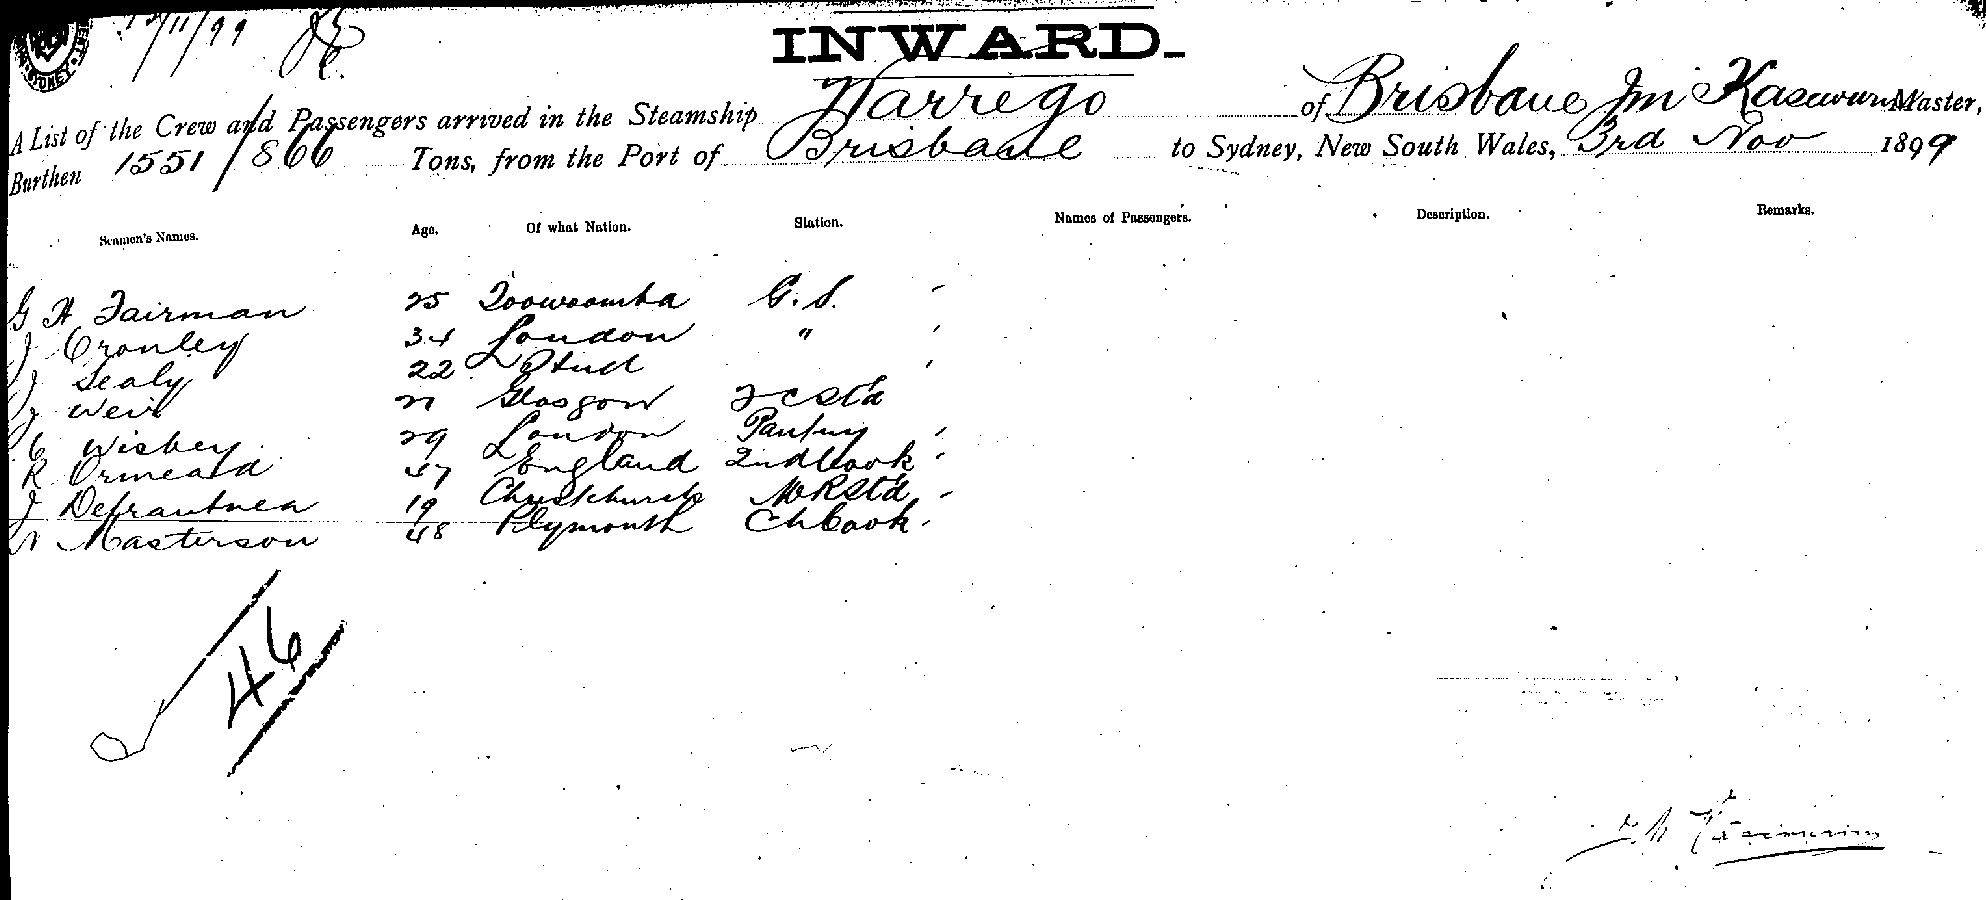 11/99
INWARD.
A List of the Crew and Passengers arrived in the Steamship Warrego of Brisbane Jm Master,
Burthen 1551/866 Tons, from the Port of Brisbane to Sydney, New South Wales, 3rd Nov 1899
Seamen's Names. Age. Of what Nation. Station. Names of Passengers. Description. Remarks.
G H Fairman 25 Toowoomba G. S.
J Cronley 34 London "
J Sealy 22
J Weir 21 Glasgow F C Std
C Wisbey 29 London Pantry
R Ormeard 47 England 2nd Cook
J 19 Christchurch M R Std
N Masterson 48 Plymouth Ch Cook
46